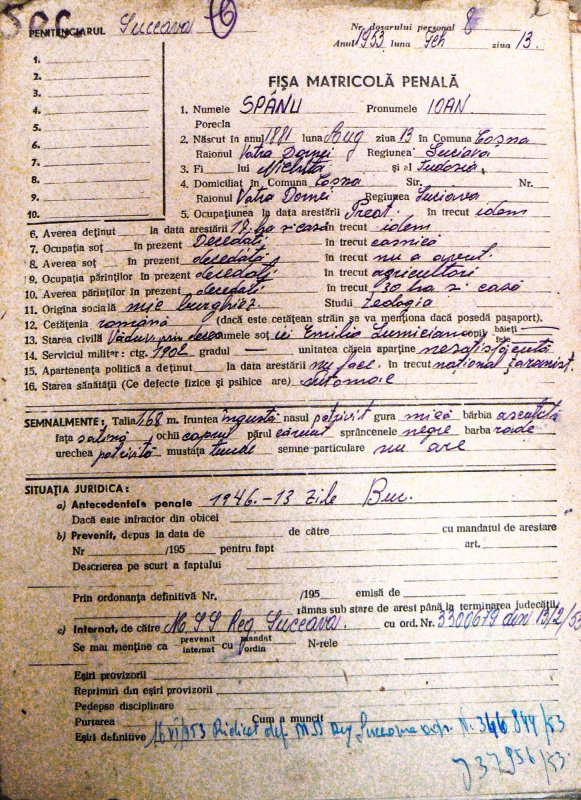 PENITENCIARUL Suceava 6
Nr. dosarului personal 8
Anul 1953 luna ziua 13.
FIȘA MATRICOLĂ PENALĂ
1.
2.
3.
4.
5.
6.
7.
8.
9.
10.
1. Numele SPÂNU Pronumele IOAN
Porecla
2. Născut în anul 1881 luna Aug ziua 13 în Comuna Coșna
Raionul Vatra Dornei Regiunea Suceava
3. Fi lui Nichita și al Tudosia
4. Domiciliat în Comuna Coșna Str. Nr.
Raionul Vatra Dornei Regiunea Suceava
5. Ocupațiunea la data arestării Preot în trecut idem
6. Averea deținut la data arestării 17 ha și casă în trecut idem
7. Ocupația soț în prezent Decedată în trecut casnică
8. Averea soț în prezent decedată în trecut nu a avut
9. Ocupația părinților în prezent decedați în trecut agricultori
10. Averea părinților în prezent decedați în trecut 30 ha și casă
11. Origina socială mic burghez Studii Teologia
12. Cetățenia română (dacă este cetățean străin se va menționa dacă posedă pașaport).
13. Starea civilă Văduv prin numele soț iei Emilia copii băieți fete
14. Serviciul militar: ctg. 1902 gradul — unitatea căreia aparține nesatisfăcută
15. Apartenența politică a deținut la data arestării nu face în trecut național țărănist.
16. Starea sănătății (Ce defecte fizice și psihice are)
SEMNALMENTE: Talia 1,68 m. fruntea îngustă nasul potrivit gura mică bărbia ascuțită
fața ochii căprui părul cărunt sprâncenele negre barba rade
urechea potrivită mustața tunde semne particulare nu are
SITUAȚIA JURIDICA:
a) Antecedentele penale 1946.-13 zile Buc.
Dacă este infractor din obicei
b) Prevenit, depus la data de de către cu mandatul de arestare
Nr /195 pentru fapt art.
Descrierea pe scurt a faptului
Prin ordonanța definitivă Nr. /195 emisă de
rămas sub stare de arest până la terminarea judecății,
c) Internat, de către M.S.S Reg. Suceava. cu ord. Nr. 3300679 din 13/2/53
Se mai menține ca prevenit internat cu mandat ordin N-rele
Eșiri provizorii
Reprimiri din eșiri provizorii
Pedepse disciplinare
Purtarea Cum a muncit
Eșiri definitive 16 VI 953 Ridicat def. MSS Reg. Suceava N. 366.844/53
J 37956/53.